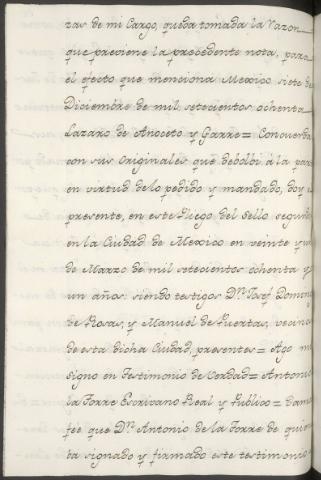 zas de mi Cargo, queda tomada la Razon
que previene la precedente nota, para
el efecto que menciona Mexico siete de
Diciembre de mil setecientos ochenta
Lazaro de Anoceto y Garre= Concuerda
con sus originales que debolbi à la par
en virtud de lo pedido y mandado, doy
presente, en este Pliego del Sello segun
en la Ciudad de Mexico en veinte y
de Marzo de mil setecientos ochenta y
un años: siendo testigos Dn. Josef
de Rosas, y Manuel de Puertas, vecino
de esta dicha Ciudad, presentes= Ago mi
signo en Testimonio de Verdad= Antonio
la Torre Escrivano Real y Publico= Damo
feé que Dn. Antonio de la Torre de quien
ba signado y firmado este testimonio